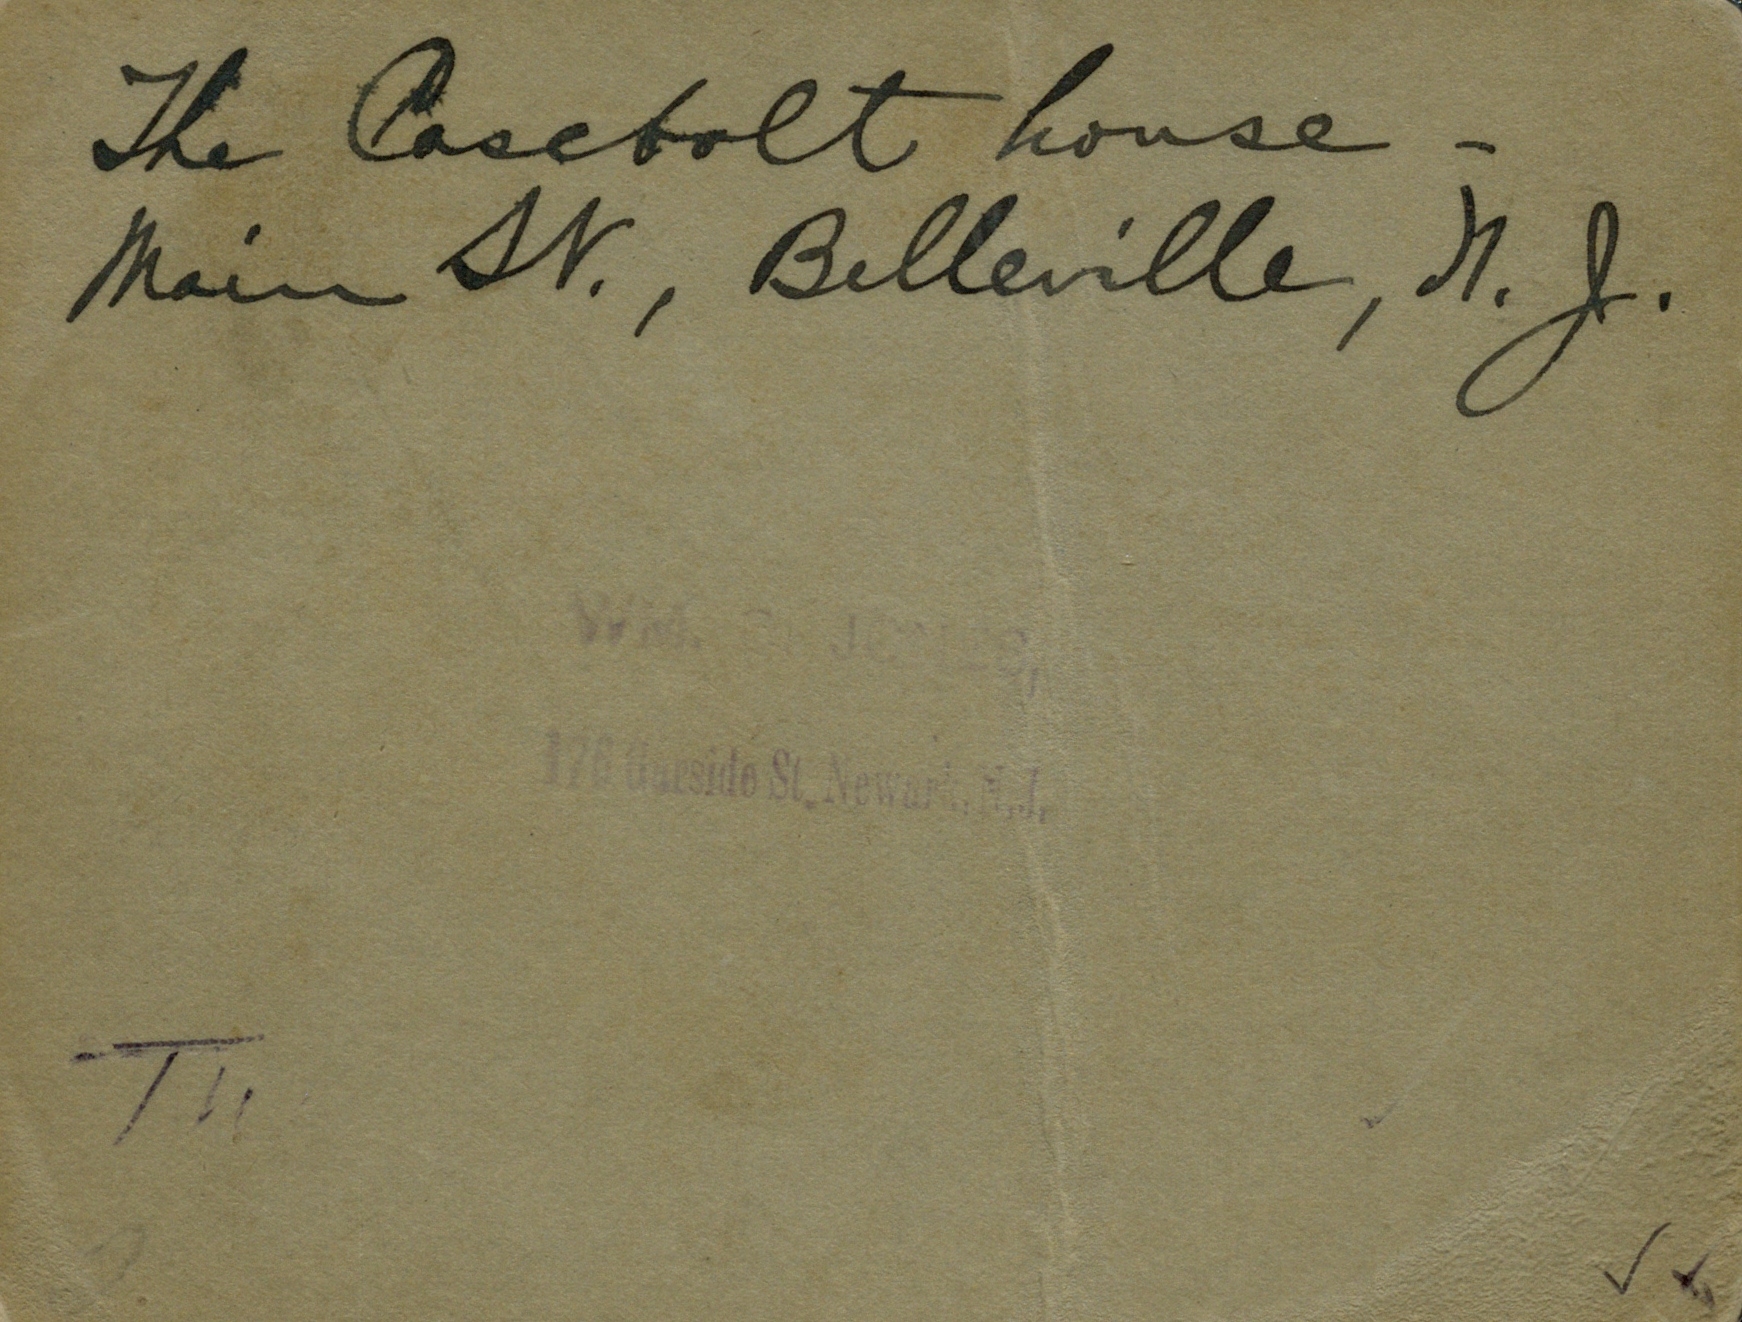 The Casebolt house -
Main St., Belleville, N. J.
Wm.
Garside St. Newark, N.J.